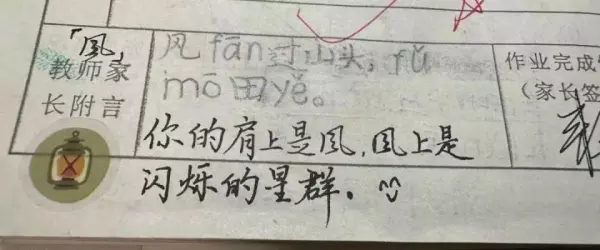 「風」
教师家
长附言
风fān过山头，fǔ
mō田yě。
你的肩上是风，风上是
闪烁的星群。
作业完成
（家长签